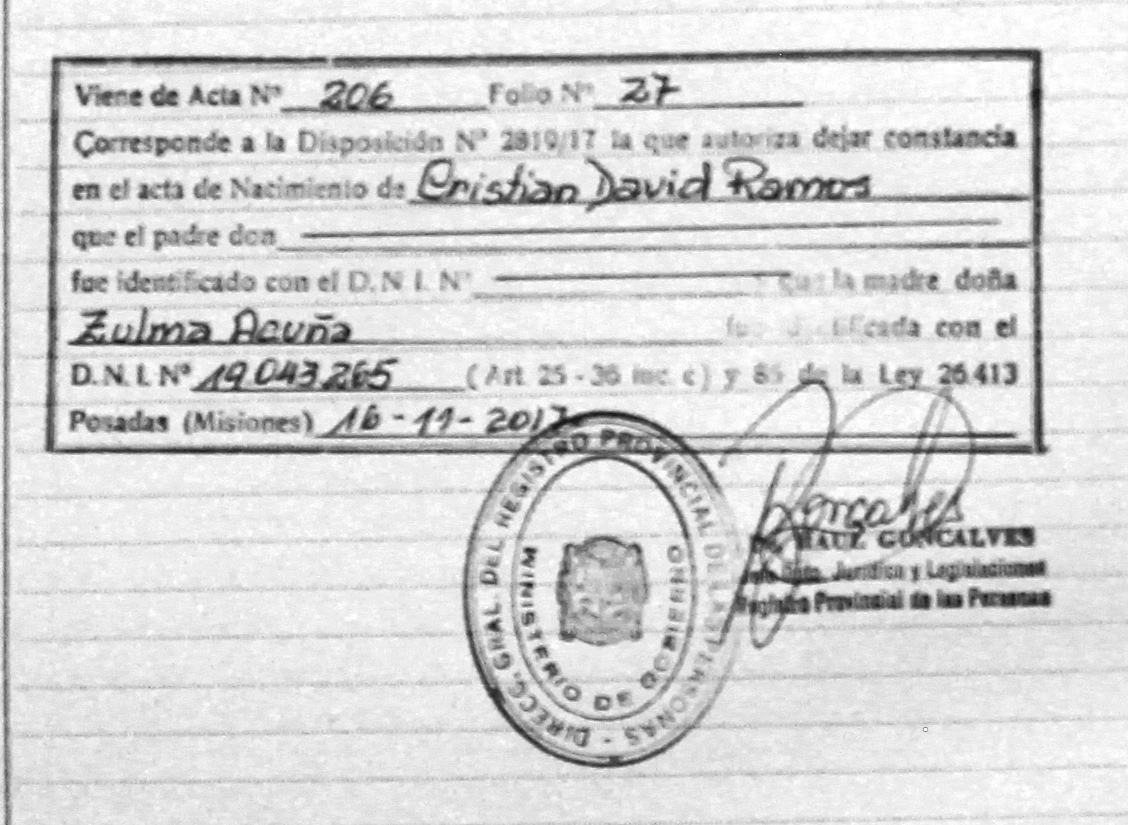 Viene de Acta Nº 206 Folio Nº 27
Corresponde a la Disposición Nº 2819/17 la que autoriza dejar constancia
en el acta de Nacimiento de Cristian David Ramos
que el padre don
fue identificado con el D.N.I. Nº que la madre doña
Zulma Acuña fue identificada con el
D.N.I. Nº 19043265 (Art. 25 - 36 inc. c) y 85 de la Ley 26.413
Posadas (Misiones) 16-11-2017
DIRECC. GRAL. DEL REGISTRO PROVINCIAL DE LAS PERSONAS
MINISTERIO DE GOBIERNO
Goncalves
RAUL GONCALVES
Jurídica y Legislaciones
Registro Provincial de las Personas